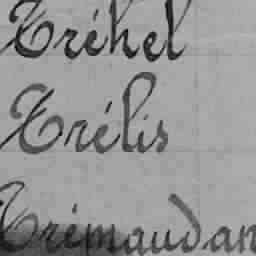 Tréhel
Trélis
Trémaudan